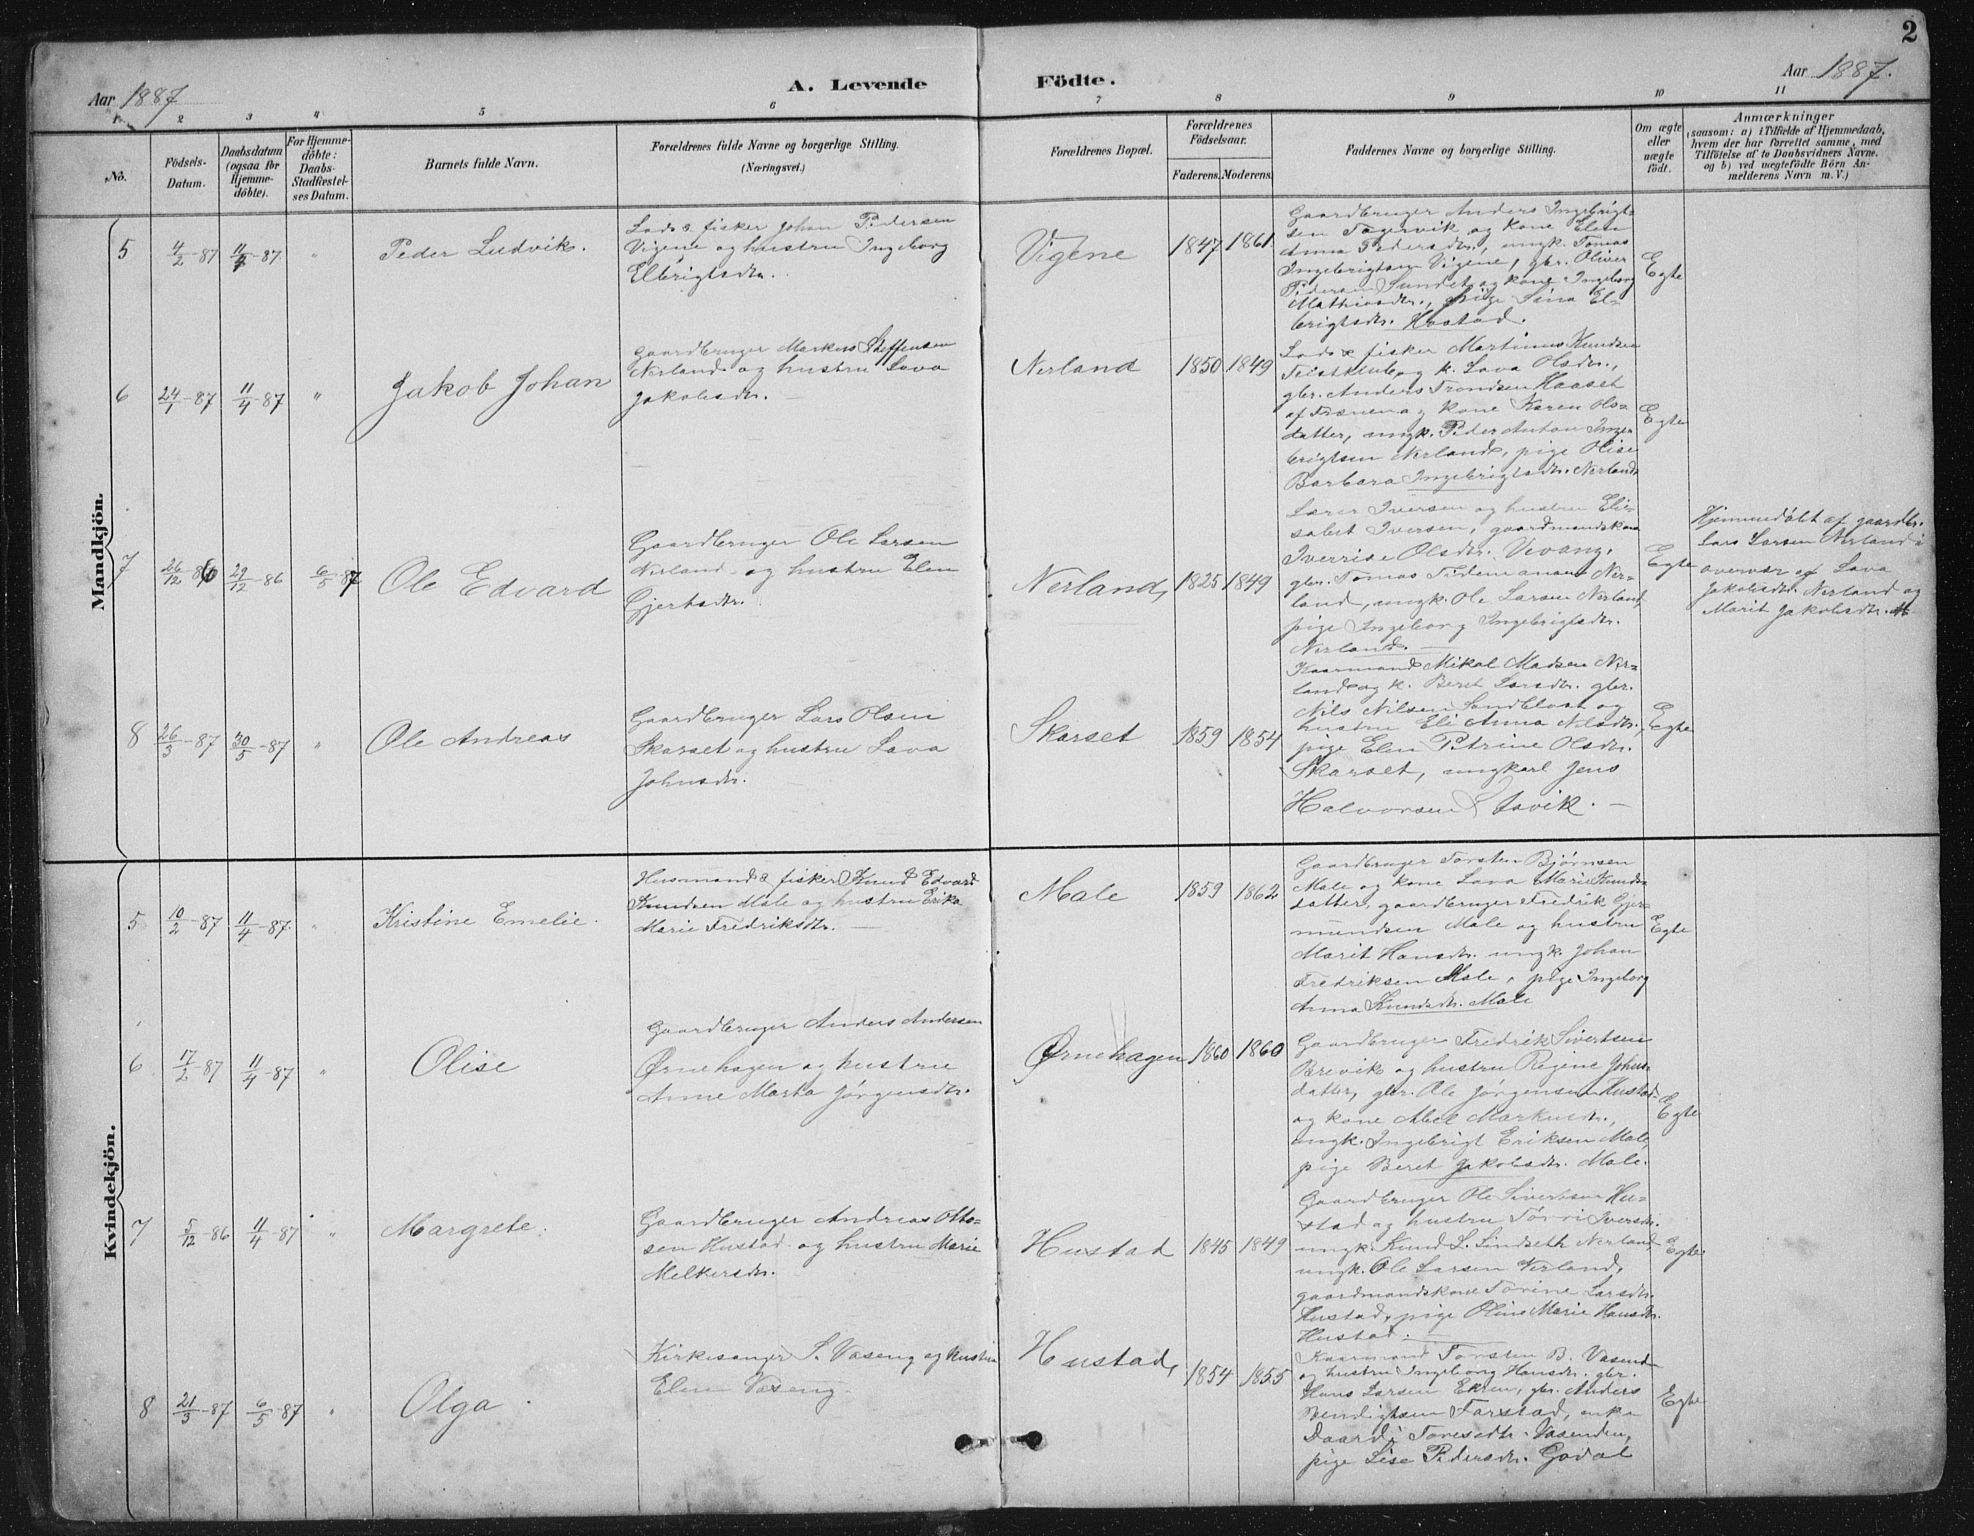 2
Aar 1887
A. Levende Födte.
Aar 1887.
1 2 3 4 5 6 7 8 9 10 11
No.
Födsels-
Datum.
Daabsdatum
(ogsaa for
Hjemme-
döbte).
For Hjemme-
döbte:
Daabs-
Stadfæstel-
ses Datum.
Barnets fulde Navn.
Forældrenes fulde Navne og borgerlige Stilling.
(Næringsvei.)
Forældrenes Bopæl.
Forældrenes
Födselsaar.
Faderens. Moderens.
Faddernes Navne og borgerlige Stilling.
Om ægte
eller
uægte
födt.
Anmærkninger
(saasom: a) i Tilfælde af Hjemmedaab,
hvem der har forrettet samme, med
Tilföielse af to Daabsvidners Navne.
og b) ved uægtefödte Börn An-
melderens Navn m. V.)
Mandkjön.
5 4/2-87 11/4-87 " Peder Ludvik.
Lods & fisker Johan Pedersen
Vigene og hustru Ingeborg
Elbrigtsdtr.
Vigene 1847 1861
Gaardbruger Anders Ingebrigt-
sen Tagervik og kone Elen
Anna Pedersdtr., ungk. Tomas
Ingebrigtsen Vigene, gbr. Oliver
Pedersen Sundet og kone Ingeborg
Mathiasdtr., pige Sina El-
brigtsdtr. Hostad.
Egte
6 24/1-87 11/4-87 " Jakob Johan
Gaardbruger Markus Steffensen
Nerland og hustru Lava
Jakobsdtr.
Nerland 1850 1849
Lods & fisker Martinus Knudsen
Teistklub og k. Lava Olsdtr.,
gbr. Anders Trondsen Haaset
af Frænen og kone Karen Ols-
datter, ungk. Peder Anton Inge-
brigtsen Nerland, pige Olise
Barbara Ingebrigtsdtr. Nerland
Egte
7 26/12-86 29/12-86 6/5-87 Ole Edvard
Gaardbruger Ole Larsen
Nerland og hustru Elen
Gjertsdtr.
Nerland, 1825 1849
Lærer Iversen og hustru Elie-
sabet Iversen, gaardmandskone
Iverrise Olsdtr. Vevang,
gbr. Tomas Tidemansen Ner-
land, ungk. Ole Larsen Nerland,
pige Ingeborg Ingebrigtsdtr.
Nerland.
Egte
Hjemmedøbt af gaardbr.
Lars Larsen Nerland i
overvær af Lava
Jakobsdtr. Nerland og
Marit Jakobsdtr.
8 26/3-87 30/5-87 " Ole Andreas
Gaardbruger Lars Olsen
Skarset og hustru Lava
Johnsdtr.
Skarset 1859 1854
Kaarmand Mikal Madsen Ner-
land og k. Beret Larsdtr. gbr.
Nils Nilsen Sandblost og
hustru Eli Anna Nilsdtr.,
pige Elen Petrine Olsdtr.
Skarset, ungkarl Jens
Halvorsen Stavik.
Egte
Kvindekjön.
5 10/2-87 11/4-87. " Kristine Emelie.
Husmand & fisker Knud Edvard
Knudsen Male og hustru Erika
Marie Fredriksdtr.
Male 1859 1862
Gaardbruger Torsten Bjørnsen
Male og kone Lava Marie Knuds-
datter, gaardbruger Fredrik Gjer-
mundsen Male og hustru
Marit Hansdtr. ungk. Johan
Fredriksen Male, pige Ingeborg
Anna Knudsdtr. Male
Egte
6 17/2-87 11/4-87 " Olise
Gaardbruger Anders Andersen
Ørnehagen og hustru
Anne Marta Jørgensdtr.
Ørnehagen 1860 1860
Gaardbruger Fredrik Sivertsen
Brevik og hustru Regine Johns-
datter, gbr. Ole Jørgensen Hustad
og kone Abel Markusdtr.,
ungk. Ingebrigt Eriksen Male,
pige Beret Jakobsdtr. Male.
Egte
7 5/12-86 11/4-87 " Margrete.
Gaardbruger Andreas Otto-
sen Hustad og hustru Marie
Melkersdtr.
Hustad 1845 1849
Gaardbruger Ole Sivertsen Hu-
stad og hustru Iversdtr.
ungk. Knud L. Lindseth Nerland,
ungk. Ole Larsen Nerland,
gaardmandskone Torine Larsdtr.
Hustad, pige Oline Marie Hansdtr.
Hustad.
Egte
8 21/3-87 6/5-87 " Olga.
Kirkesanger S. Vaseng og hustru
Elen Vaseng.
Hustad, 1854 1855
Kaarmand Torsten B. Vasend
og hustru Ingeborg Hansdtr. gbr.
Hans Larsen Ekren, gbr. Anders
Bendigtsen Farstad, enke
Toresdtr. Vasenden,
pige Lise Pedersdtr. Godal
Egte